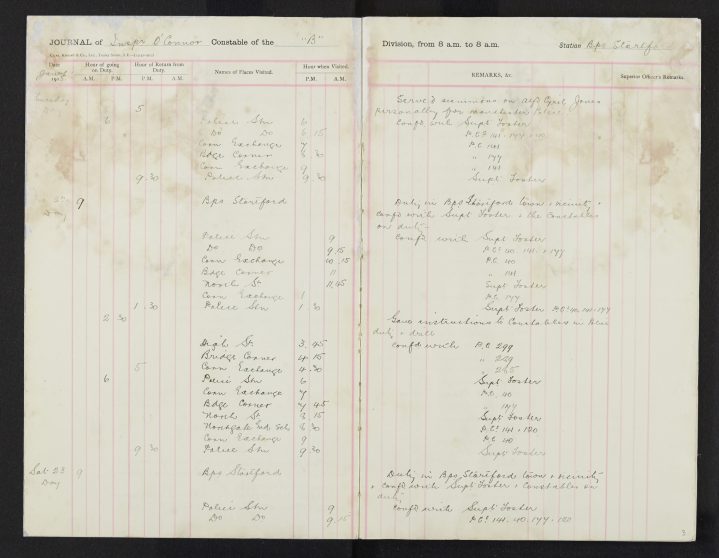 JOURNAL of Inspr O'Connor Constable of the "B"
Date
Hour of going on Duty.
Hour of Return from Duty.
Names of Places Visited.
Hour when Visited.
A.M. P.M. P.M. A.M. P.M. A.M.
5
6 Police Stn 6
Do Do 6 15
Corn Exchange 7
Bdge Corner 8 30
Corn Exchange 9
9.30 Police Stn 9 30
9 Bps Stortford
Day
Police Stn 9
Do Do 9.15
Corn Exchange 10.15
Bdge Corner 11
North St 11.45
Corn Exchange 1
1.30 Police Stn 1 30
2 30
High St 3.45
Bridge Corner 4 15
Corn Exchange 4.30
5
6 Police Stn 6
Corn Exchange 7
Bdge Corner 7 45
North St 8 15
Northgate End Sch 8 30
Corn Exchange 9
9 30 Police Stn 9 30
Sat 23 9 Bps Stortford
Day
Police Stn 9
Do Do 9.15
Division, from 8 a.m. to 8 a.m. Station Bps Stortford
REMARKS, &c. Superior Officer's Remarks.
Served summons on Cyril Jones
personally for Manchester Police
Confd with Supt Foster
P.Cs 141. 177
P.C. 141
" 177
" 141
Supt Foster
Duty in Bps Stortford town & vicinity &
confd with Supt Foster & the Constables
on duty
Confd with Supt Foster
P.Cs 40. 141. & 177
P.C. 40
" 141
Supt Foster
P.C. 177
Supt Foster P.Cs 40. 141. 177
Gave instructions to Constables in their
duty & drill
Confd with P.C. 299
" 229
" 265
Supt Foster
P.C. 40
" 177
Supt Foster
P.Cs 141 & 120
P.C. 40
Supt Foster
Duty in Bps Stortford town & vicinity
& confd with Supt Foster & Constables on
duty
Confd with Supt Foster
P.Cs 141. 40. 177.
3